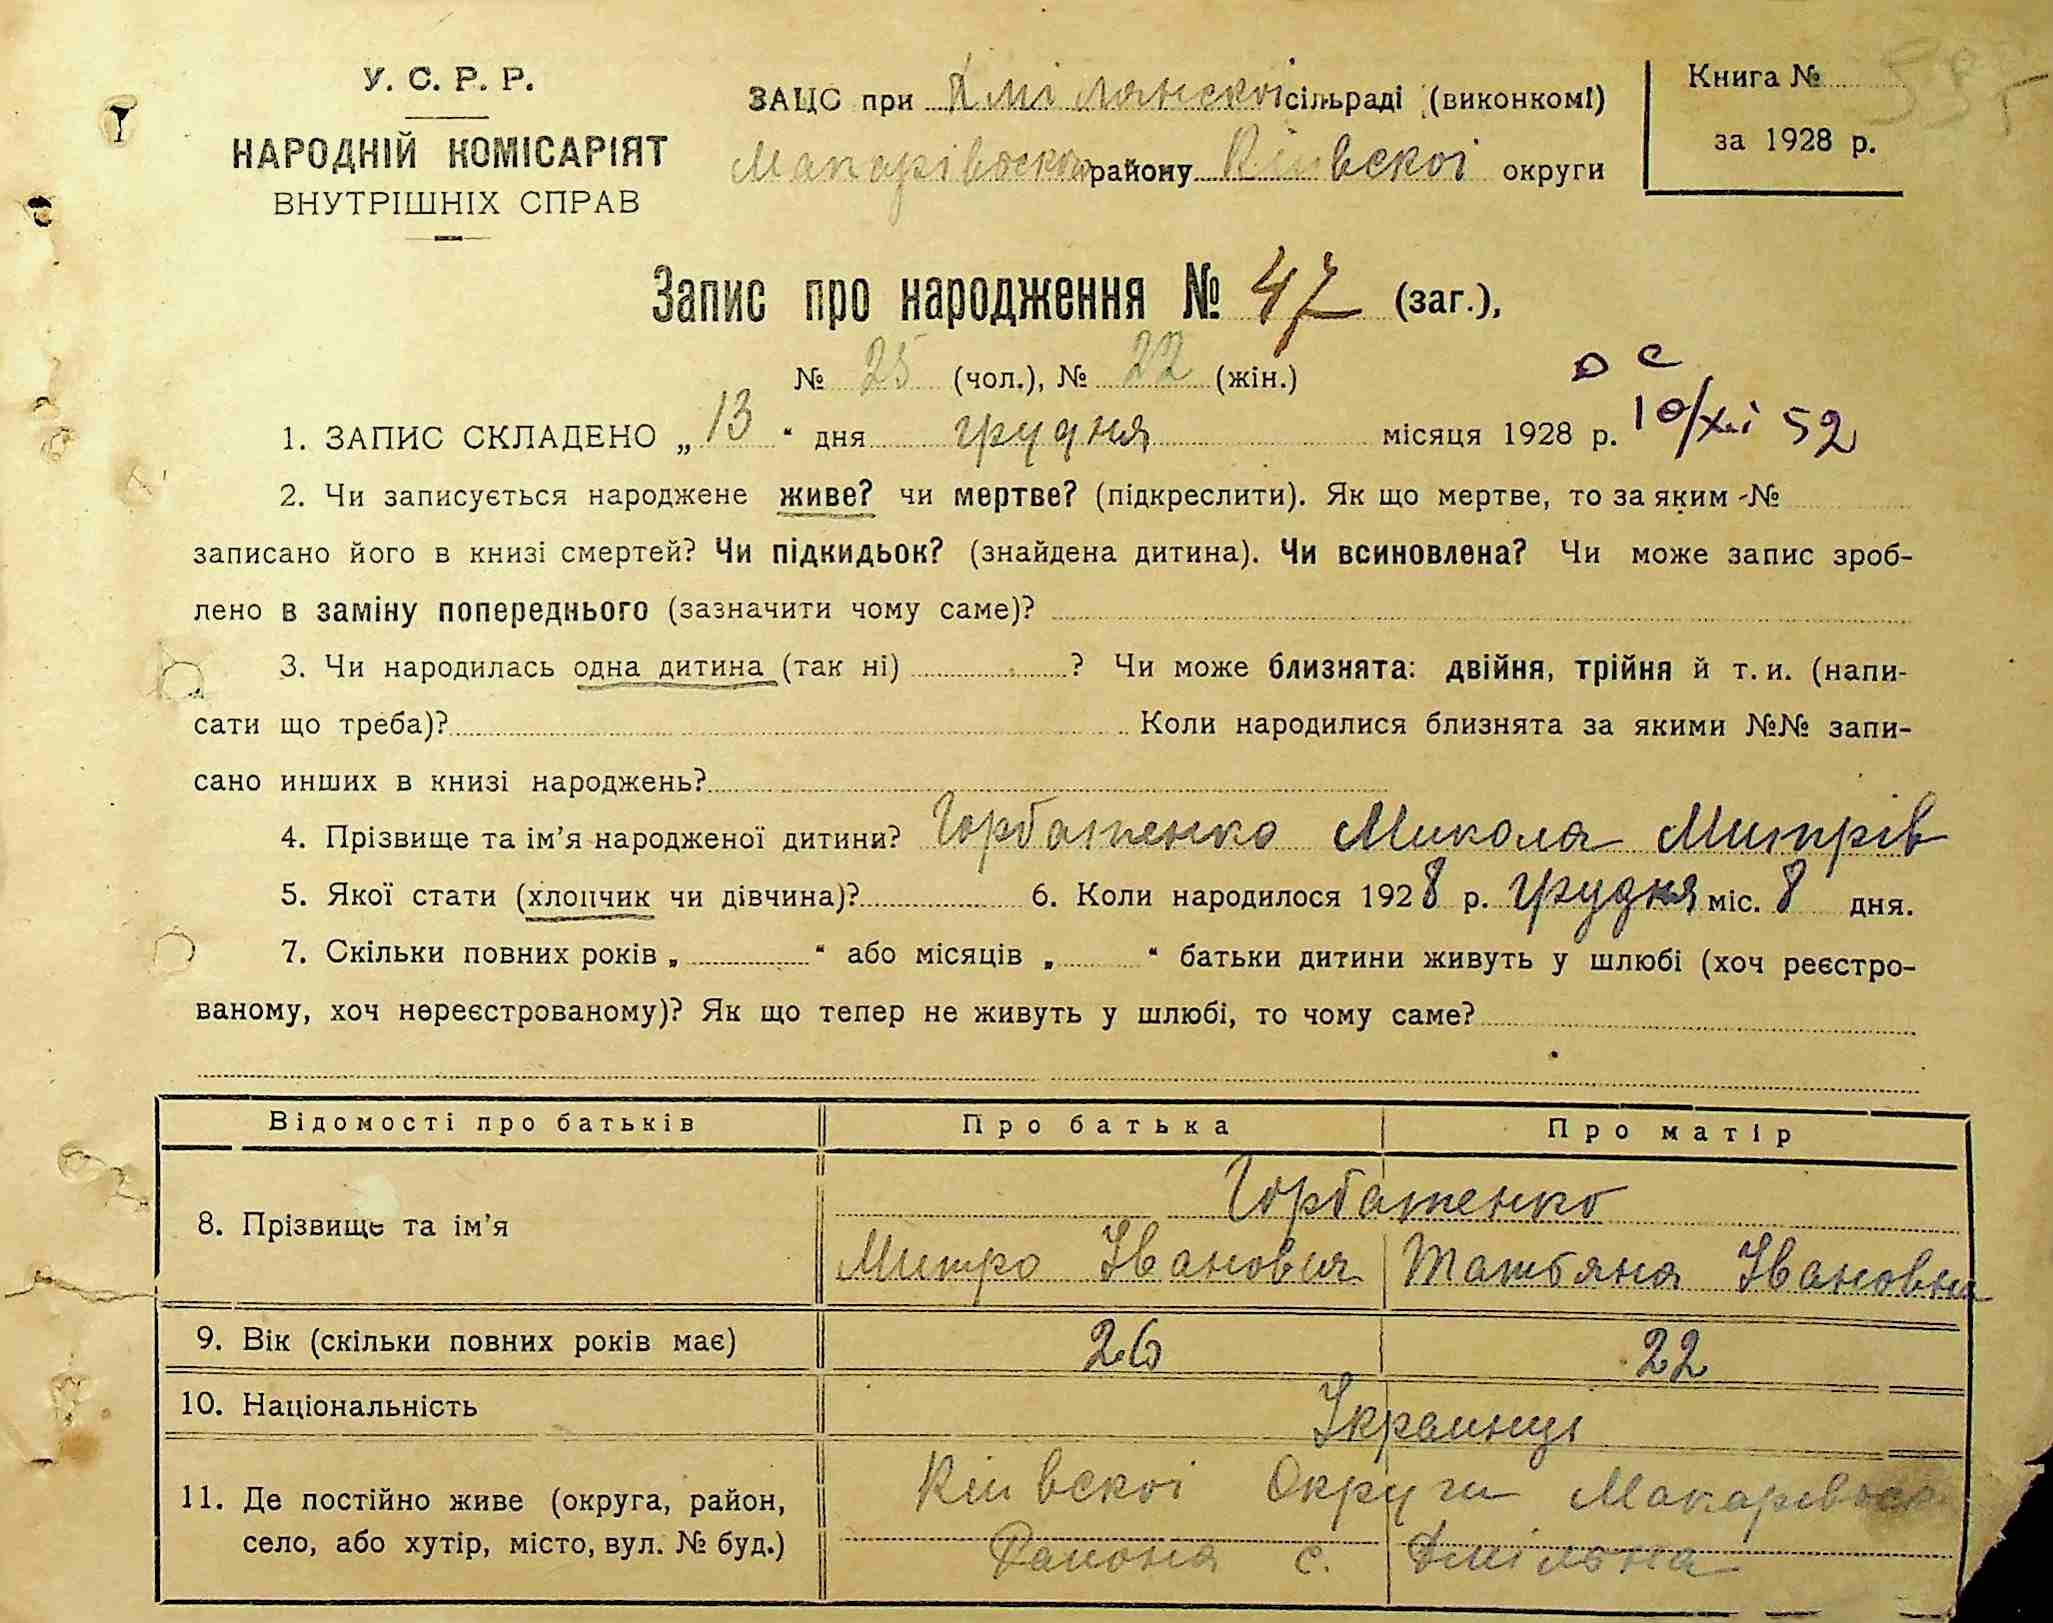 У. С. Р. Р.
НАРОДНІЙ КОМІСАРІЯТ
ВНУТРІШНІХ СПРАВ
ЗАЦС при Хмілянскоі сільраді (виконкомі)
Макарівского району Кіівскоі округи
Книга №
за 1928 р.
Запис про народження № 47 (заг.),
№ 25 (чол.), № 22 (жін.)
1. ЗАПИС СКЛАДЕНО „ 13 “ дня грудня місяця 1928 р. 10/XII 52
2. Чи записується народжене живе? чи мертве? (підкреслити). Як що мертве, то за яким №
записано його в книзі смертей? Чи підкидьок? (знайдена дитина). Чи всиновлена? Чи може запис зроб-
лено в заміну попереднього (зазначити чому саме)?
3. Чи народилась одна дитина (так ні) ? Чи може близнята: двійня, трійня й т. и. (напи-
сати що треба)? Коли народилися близнята за якими №№ запи-
сано инших в книзі народжень?
4. Прізвище та ім’я народженої дитини? Горбатенко Микола Митрів
5. Якої стати (хлопчик чи дівчина)? 6. Коли народилося 1928 р. грудня міс. 8 дня.
7. Скільки повних років „ “ або місяців „ “ батьки дитини живуть у шлюбі (хоч реєстро-
ваному, хоч нереєстрованому)? Як що тепер не живуть у шлюбі, то чому саме?
Відомості про батьків Про батька Про матір
8. Прізвище та ім’я Горбатенко
Митро Івановия Татьяна Івановна
9. Вік (скільки повних років має) 26 22
10. Національність Украинці
11. Де постійно живе (округа, район, Кіівскоі Округи
село, або хутір, місто, вул. № буд.) Района с. Хмільна